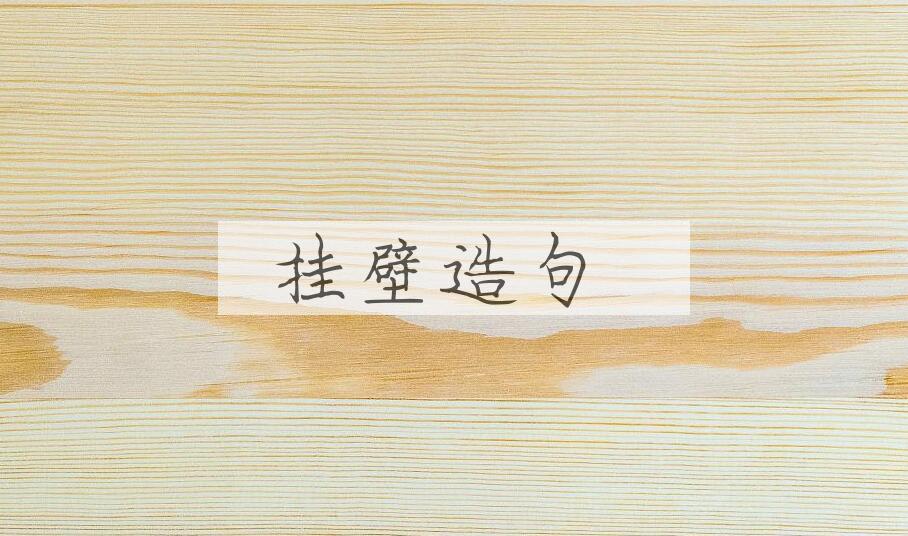 挂壁造句